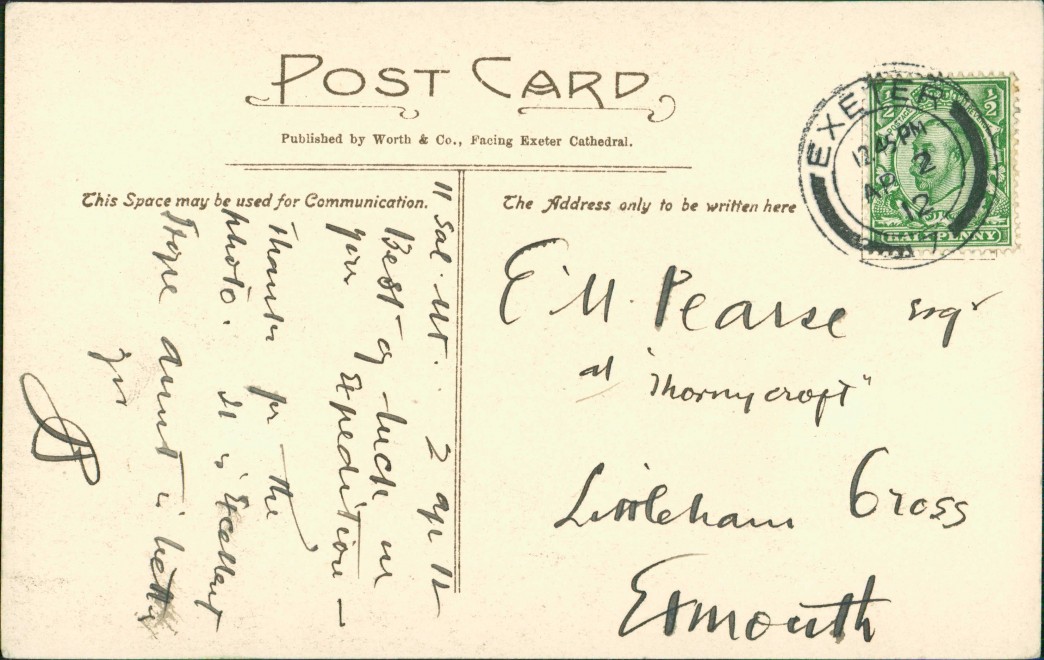 POST CARD
Published by Worth & Co., Facing Exeter Cathedral.
This Space may be used for Communication.
The Address only to be written here
EXETER
12.45 PM
AP 2
12
½ ½
POSTAGE
HALFPENNY
11 Sal. 2 ap 12
Best of luck in
your Expedition —
Thanks for the
photo. It is Excellent
Hope aunt is better
E M. Pearse Esqr
at "Thornycroft"
Littleham Cross
Exmouth